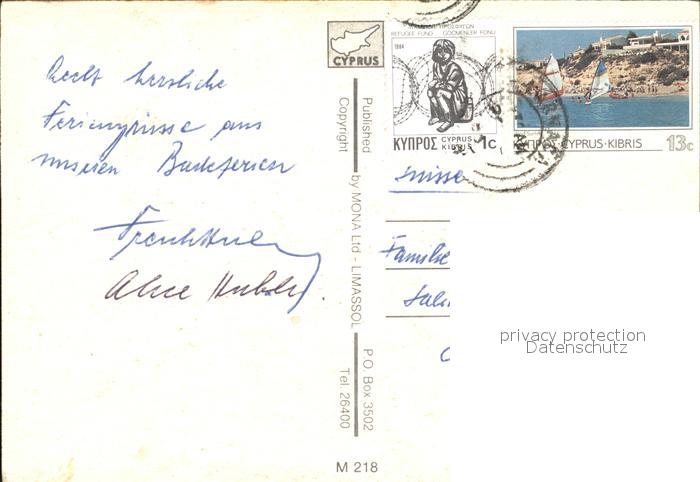 Recht herzliche
Feriengrüsse aus
unseren Badeferien
Alice
CYPRUS
Published by MONA Ltd - LIMASSOL P.O. Box 3502
Copyright Tel. 26400
M 218
REFUGEE FUND GÖÇMENLER FONU
1984
ΚΥΠΡΟΣ CYPRUS KIBRIS 1c
CYPRUS·KIBRIS 13c
Suisse
Familie
privacy protection
Datenschutz